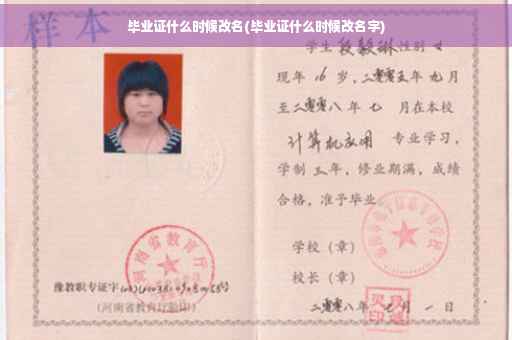 毕业证什么时候改名(毕业证什么时候改名字)
样本
学生段毅琳性别女
现年16岁,二零零五年九月
至二零零八年七月在本校
计算机应用 专业学习,
学制三年,修业期满,成绩
合格,准予毕业
学校(章)
校长(章)
二零零八年七月一日
河南省教育厅
豫教职专证字
(河南省教育厅验印)